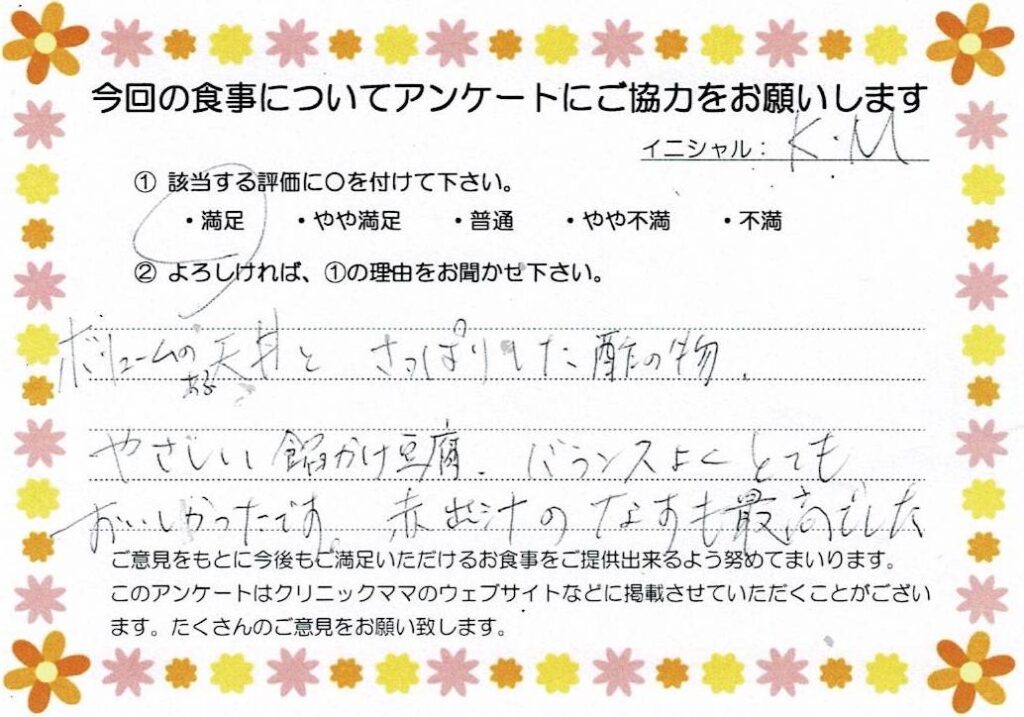 今回の食事についてアンケートにご協力をお願いします
イニシャル： K・M
① 該当する評価に〇を付けて下さい。
・満足 ・やや満足 ・普通 ・やや不満 ・不満
② よろしければ、①の理由をお聞かせ下さい。
ボリュームのある天丼と さっぱりした酢の物、
やさしい餡かけ豆腐、バランスよくとても
おいしかったです。赤出汁のなすも最高でした
ご意見をもとに今後もご満足いただけるお食事をご提供出来るよう努めてまいります。
このアンケートはクリニックママのウェブサイトなどに掲載させていただくことがござい
ます。たくさんのご意見をお願い致します。